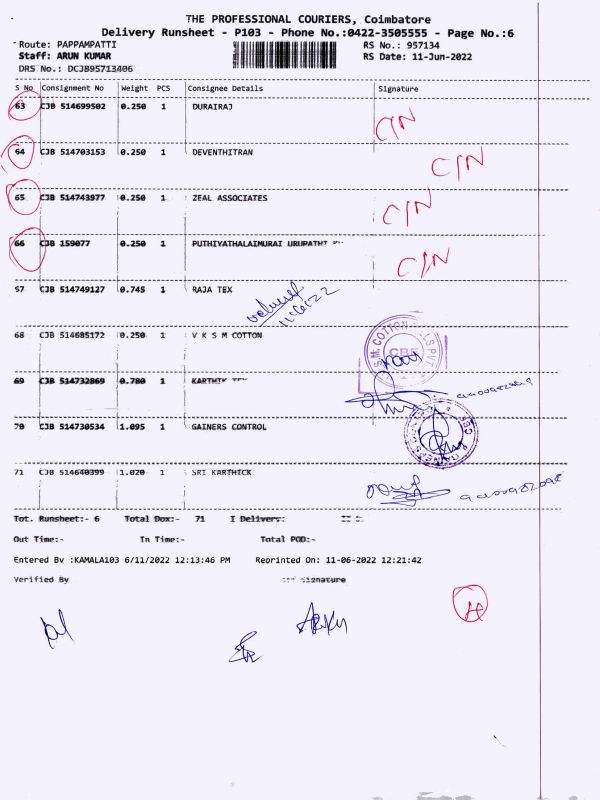 THE PROFESSIONAL COURIERS, Coimbatore
Delivery Runsheet - P103 - Phone No.:0422-3505555 - Page No.:6
Route: PAPPAMPATTI RS No.: 957134
Staff: ARUN KUMAR RS Date: 11-Jun-2022
DRS No.: DCJB95713406
S No Consignment No Weight PCS Consignee Details Signature
63 CJB 514699502 0.250 1 DURAIRAJ
C/N
64 CJB 514703153 0.250 1 DEVENTHITRAN
C/N
65 CJB 514743977 0.250 1 ZEAL ASSOCIATES
C/N
66 CJB 159077 0.250 1 PUTHIYATHALAIMURAI URUPATHI
C/N
67 CJB 514749127 0.745 1 RAJA TEX
68 CJB 514685172 0.250 1 V K S M COTTON
69 CJB 514732869 0.780 1 KARTHIK TEX
70 CJB 514730534 1.095 1 GAINERS CONTROL
71 CJB 514640399 1.020 1 SRI KARTHICK
Tot. Runsheet:- 6 Total Dox:- 71 I Delivery:
Out Time:- In Time:- Total POD:-
Entered By :KAMALA103 6/11/2022 12:13:46 PM Reprinted On: 11-06-2022 12:21:42
Verified By Signature